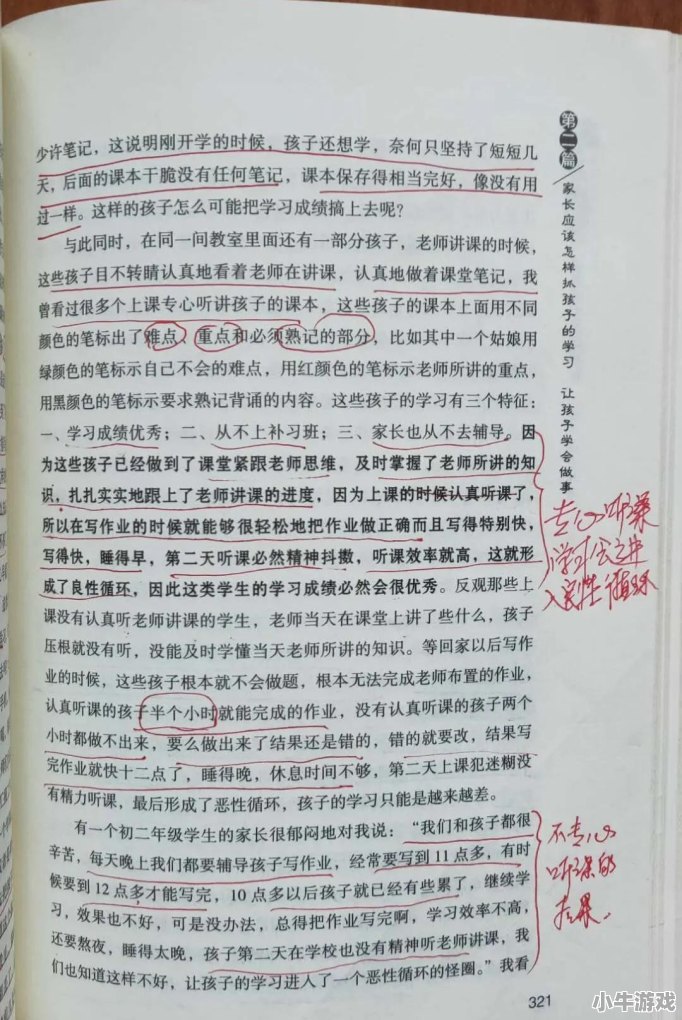 少许笔记，这说明刚开学的时候，孩子还想学，奈何只坚持了短短几
天，后面的课本干脆没有任何笔记，课本保存得相当完好，像没有用
过一样。这样的孩子怎么可能把学习成绩搞上去呢？
与此同时，在同一间教室里面还有一部分孩子，老师讲课的时候，
这些孩子目不转睛认真地看着老师在讲课，认真地做着课堂笔记，我
曾看过很多个上课专心听讲孩子的课本，这些孩子的课本上面用不同
颜色的笔标出了难点、重点和必须熟记的部分，比如其中一个姑娘用
绿颜色的笔标示自己不会的难点，用红颜色的笔标示老师所讲的重点，
用黑颜色的笔标示要求熟记背诵的内容。这些孩子的学习有三个特征：
一、学习成绩优秀；二、从不上补习班；三、家长也从不去辅导。因
为这些孩子已经做到了课堂紧跟老师思维，及时掌握了老师所讲的知
识，扎扎实实地跟上了老师讲课的进度，因为上课的时候认真听课了，
所以在写作业的时候就能够很轻松地把作业做正确而且写得特别快，
写得快，睡得早，第二天听课必然精神抖擞，听课效率就高，这就形
成了良性循环，因此这类学生的学习成绩必然会很优秀。反观那些上
课没有认真听老师讲课的学生，老师当天在课堂上讲了些什么，孩子
压根就没有听，没能及时学懂当天老师所讲的知识。等回家以后写作
业的时候，这些孩子根本就不会做题，根本无法完成老师布置的作业，
认真听课的孩子半个小时就能完成的作业，没有认真听课的孩子两个
小时都做不出来，要么做出来了结果还是错的，错的就要改，结果写
完作业就快十二点了，睡得晚，休息时间不够，第二天上课犯迷糊没
有精力听课，最后形成了恶性循环，孩子的学习只能是越来越差。
有一个初二年级学生的家长很郁闷地对我说：“我们和孩子都很
辛苦，每天晚上我们都要辅导孩子写作业，经常要写到11点多，有时
候要到12点多才能写完，10点多以后孩子就已经有些累了，继续学
习，效果也不好，可是没办法，总得把作业写完啊，学习效率不高，
还要熬夜，睡得太晚，孩子第二天在学校也没有精神听老师讲课，我
们也知道这样不好，让孩子的学习进入了一个恶性循环的怪圈。”我看
321
第二篇
家长应该怎样抓孩子的学习
让孩子学会做事
专心听课
学习会进
入良性循环
不专心
听课的
后果
小牛游戏